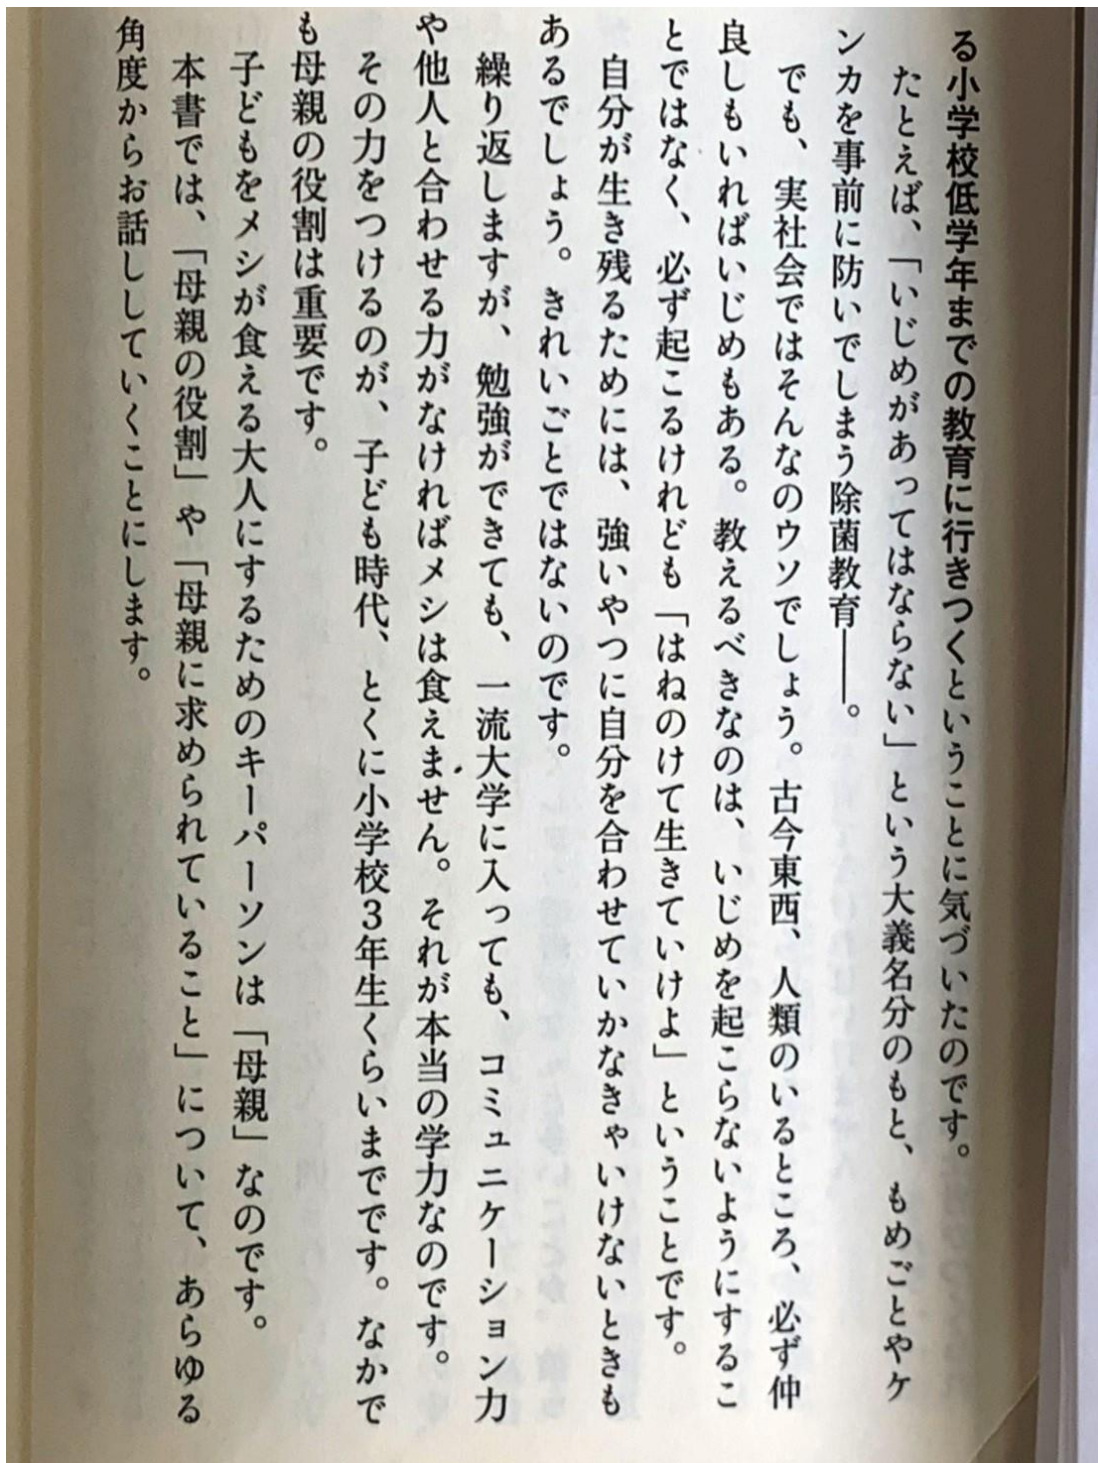 る小学校低学年までの教育に行きつくということに気づいたのです。
たとえば、「いじめがあってはならない」という大義名分のもと、もめごとやケ
ンカを事前に防いでしまう除菌教育――。
でも、実社会ではそんなのウソでしょう。古今東西、人類のいるところ、必ず仲
良しもいればいじめもある。教えるべきなのは、いじめを起こらないようにするこ
とではなく、必ず起こるけれども「はねのけて生きていけよ」ということです。
自分が生き残るためには、強いやつに自分を合わせていかなきゃいけないときも
あるでしょう。きれいごとではないのです。
繰り返しますが、勉強ができても、一流大学に入っても、コミュニケーション力
や他人と合わせる力がなければメシは食えません。それが本当の学力なのです。
その力をつけるのが、子ども時代、とくに小学校3年生くらいまでです。なかで
も母親の役割は重要です。
子どもをメシが食える大人にするためのキーパーソンは「母親」なのです。
本書では、「母親の役割」や「母親に求められていること」について、あらゆる
角度からお話ししていくことにします。